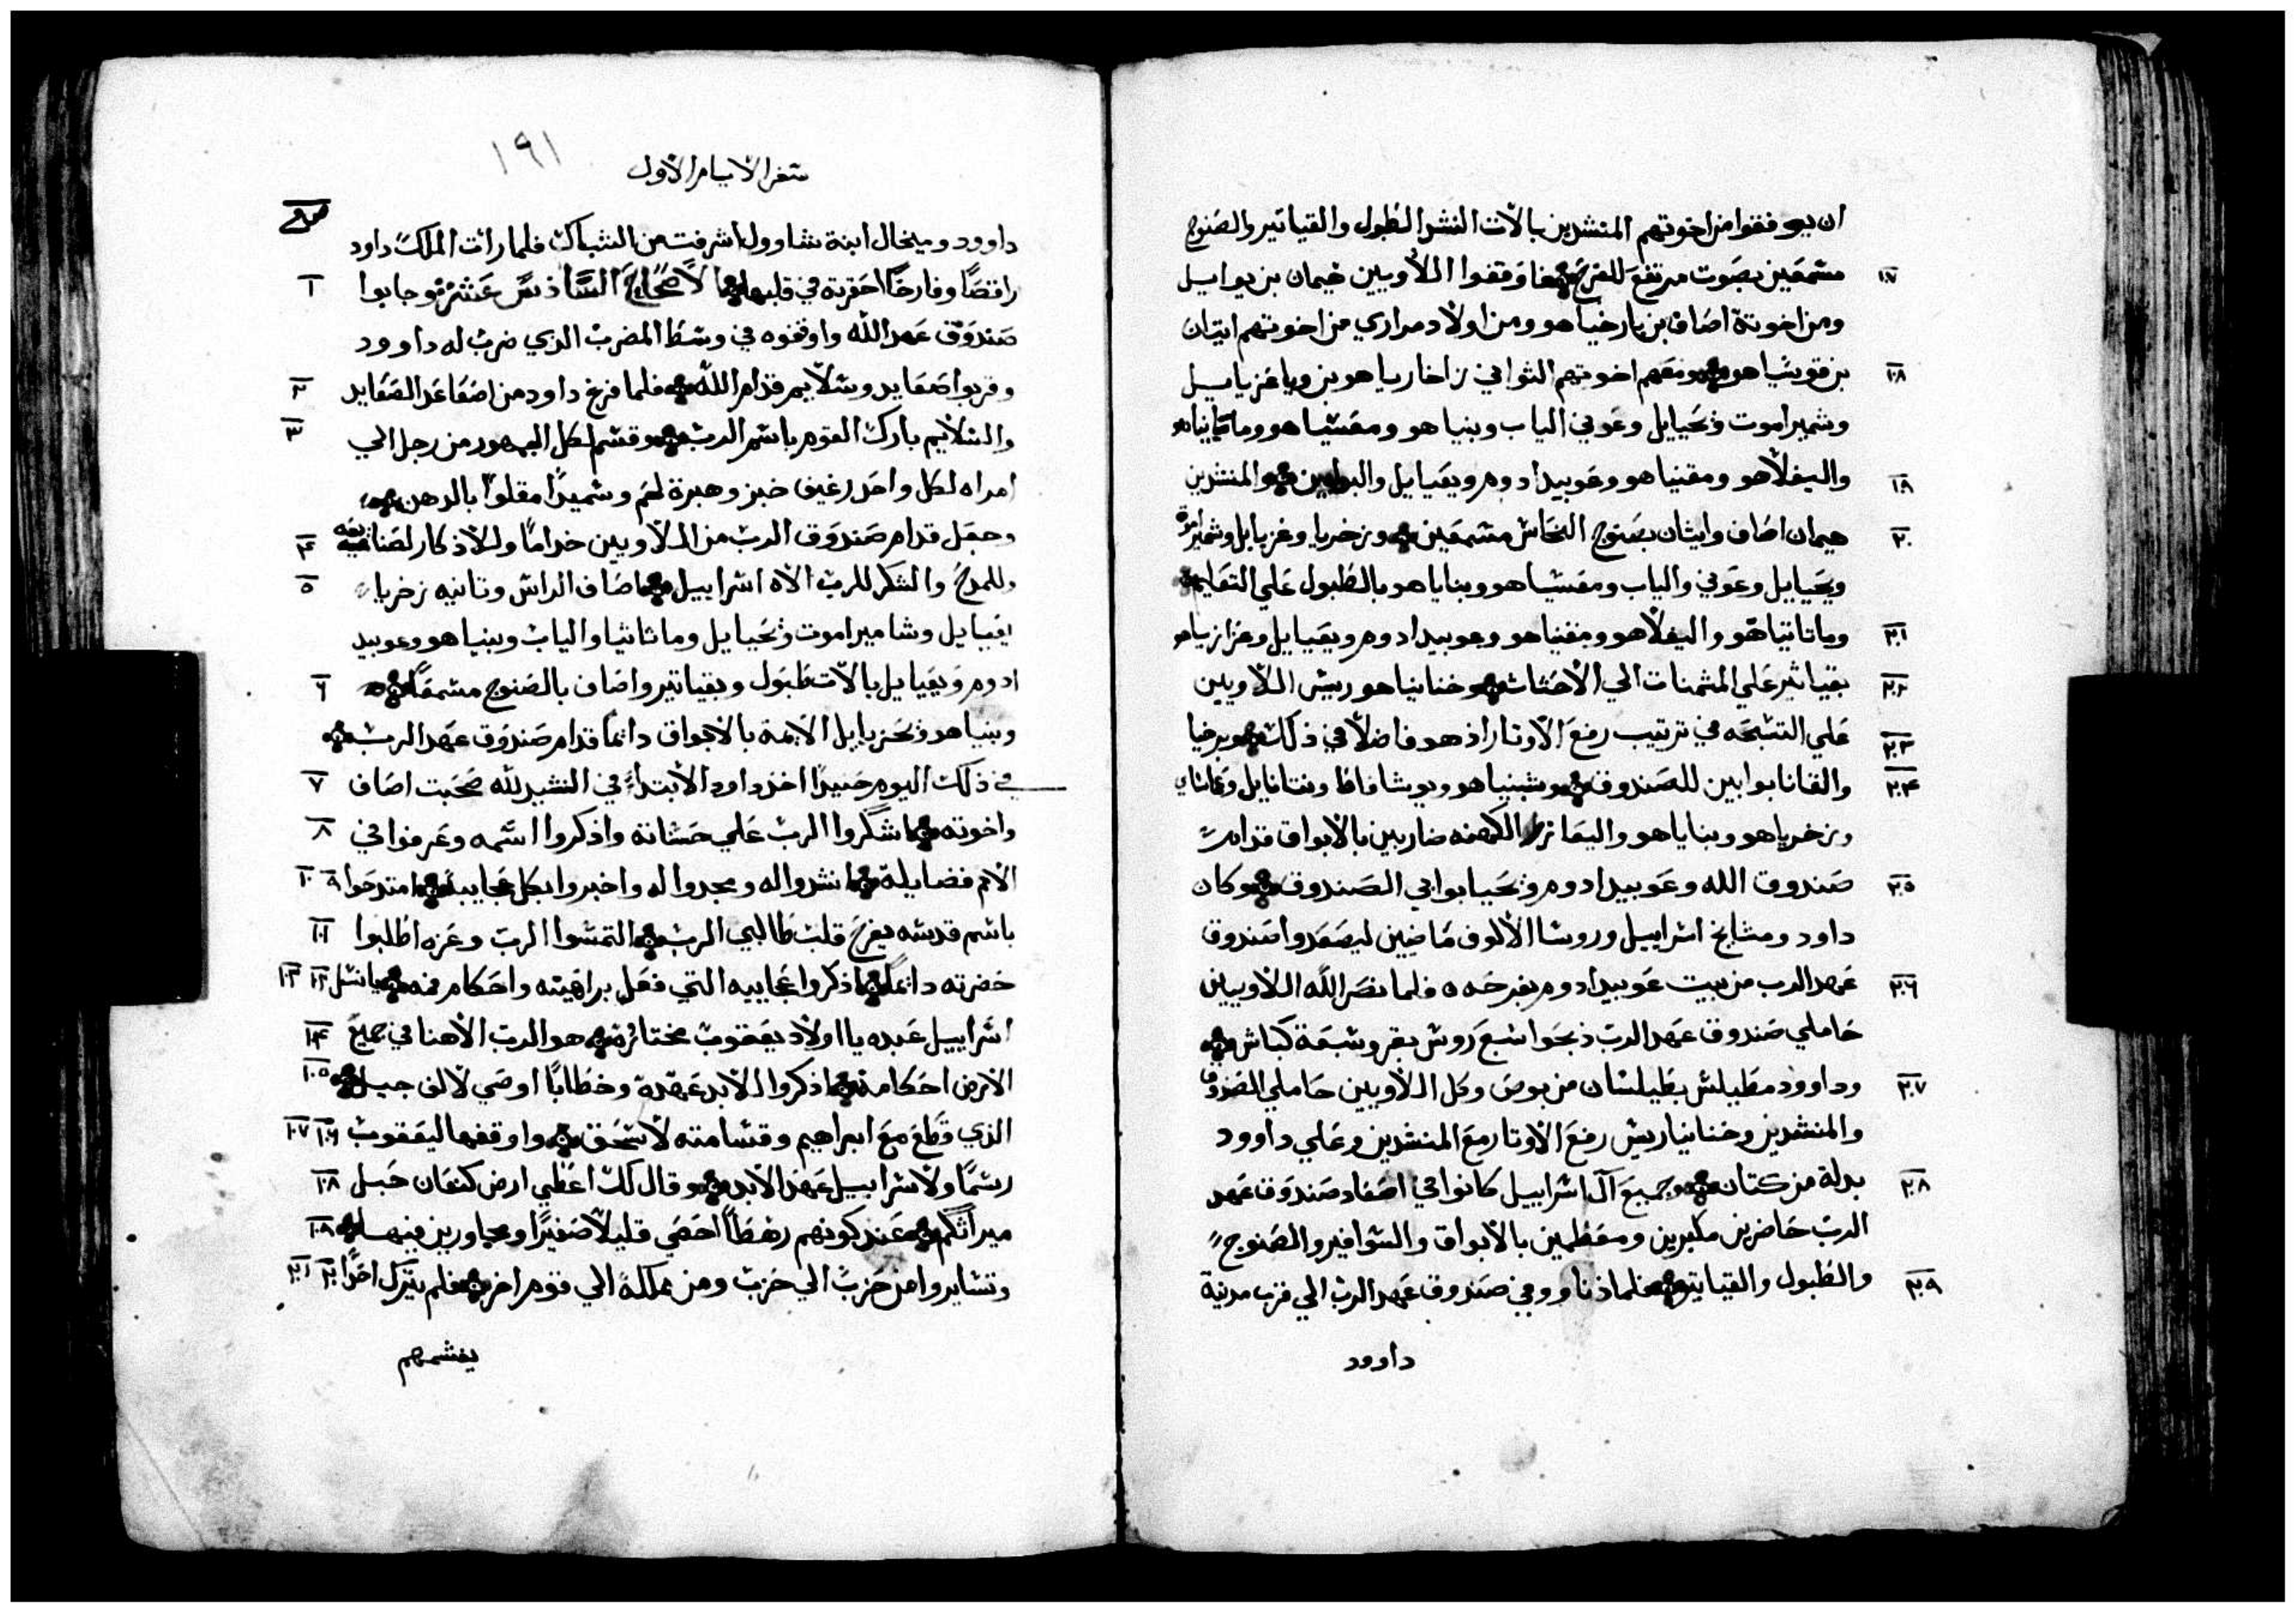 ان يوقفوا من اخوتهم المنشدين بالآت النشد الطبول والقياتير والصنوج
مسمعين بصوت مرتفع للفرح فاوقفوا اللاويين هيمان بن يواييل ١٧
ومن اخوتة اصاف بن بارخيا هو ومن اولاد مراري من اخوتهم ايتان
بن قوشيا هو ومعهم اخوتهم الثواني زاخارياهو بن وياعزياييل ١٨
وشميراموت ويحيايل وعوني الياب وبنياهو ومعسياهو وماتاثياهو
واليفلاهو ومقنياهو وعوبيد ادوم ويعيايل والبوابين والمنشدين ١٩
هيمان اصاف وايثان بصنوج النحاس مسمعين وزخريا وعزيايل وشميراموة ٢٠
ويحيايل وعوني والياب ومعسياهو وبناياهو بالطبول علي التعاليم
وماتاتياهو واليفلاهو ومقنياهو وعوبيد ادوم ويعيايل وعزازياهو ٢١
بقياثير علي المثمنات الي الاحثاث وخنانياهو رييس اللاويين ٢٢
علي التسبحه في ترتيب رفع الاوتار اذ هو فاضلاً في ذلك وبرخيا ٢٣
والقانا بوابين للصندوق وشبنياهو ويوشافاط ونتانايل وعماساي ٢٤
وزخرياهو وبناياهو واليعازر الكهنه ضاربين بالابواق قدام
صندوق الله وعوبيد ادوم ويحيا بوابي الصندوق وكان ٢٥
داود ومشايخ اسراييل وروسا الالوف ماضيين ليصعدوا صندوق
عهد الرب من بيت عوبيد ادوم بفرحه فلما نصر الله اللاويين ٢٦
حاملي صندوق عهد الرب ذبحوا سبع روس بقر وسبعة كباش
وداوود مطيلس بطيلسان من بوص وكل اللاويين حاملي الصندوق ٢٧
والمنشدين وخنانيا ريس رفع الاوتار مع المنشدين وعلي داوود
بدلة من كتان وجميع آل اسراييل كانوا في اصعاد صندوق عهد ٢٨
الرب حاضرين مكبرين ومعظمين بالابواق والسوافير والصنوج
والطبول والقياتير فلما دنا ووفي صندوق عهد الرب الي قرب مدينة ٢٩
داوود
١٩١
سفر الايام الاول
داوود وميخال ابنة شاوول اشرفت من الشباك فلما رات الملك داود
راقصاً وفارحاً احقرته في قلبها الاصحاح السادس عشر وجابوا ١
صندوق عهد الله واوقفوه في وسط المضرب الذي ضرب له داوود
وقربوا صعايد وسلايم قدام الله فلما فرغ داود من اصعاد الصعايد ٢
والسلايم بارك القوم باسم الرب وقسم لكل الجمهور من رجل الي ٣
امراه لكل واحد رغيف خبز وهبرة لحم وسميداً مقلواً بالدهن
وجعل قدام صندوق الرب من اللاويين خداماً وللاذكار لصنايعه ٤
وللمدح والشكر للرب الاه اسراييل اصاف الراس وتانيه زخريا ٥
يعيايل وشاميراموت ويحيايل وماتاثيا والياب وبنياهو وعوبيد
ادوم ويعيايل بالآت طبول وبقياتير واصاف بالصنوج مسمعاً ٦
وبنياهو ويحزيايل الايمة بالابواق دايماً قدام صندوق عهد الرب
في ذلك اليوم حينيداً اخذ داود الابتداء في النشيد لله صحبت اصاف ٧
واخوته اشكروا الرب علي حسناته واذكروا اسمه وعرفوا في ٨
الامم فضايله انشدوا له ومجدوا له واخبروا بكل عجايبه امتدحوا ٩ ١٠
باسم قدسه يفرح قلب طالبي الرب التمسوا الرب وعزه اطلبوا ١١
حضرته دايماً اذكروا عجايبه التي فعل براهينه واحكام فمه يا نسل ١٢ ١٣
اسراييل عبده يا اولاد يعقوب مختاره هو الرب الاهنا في جميع ١٤
الارض احكامه اذكروا للابد عهده وخطاباً اوصي لالف جيل ١٥
الذي قطع مع ابراهيم وقسامته لاسحق واوقفها ليعقوب ١٦ ١٧
رسماً ولاسراييل عهد الابد وقال لك اعطي ارض كنعان حبل ١٨
ميراثكم عند كونهم رهطاً احصي قليلاً صغيراً ومجاورين فيها ١٩
وتسايروا من حزب الي حزب ومن مملكة الي قوم اخر فلم يترك احداً ٢٠ ٢١
يغشمهم